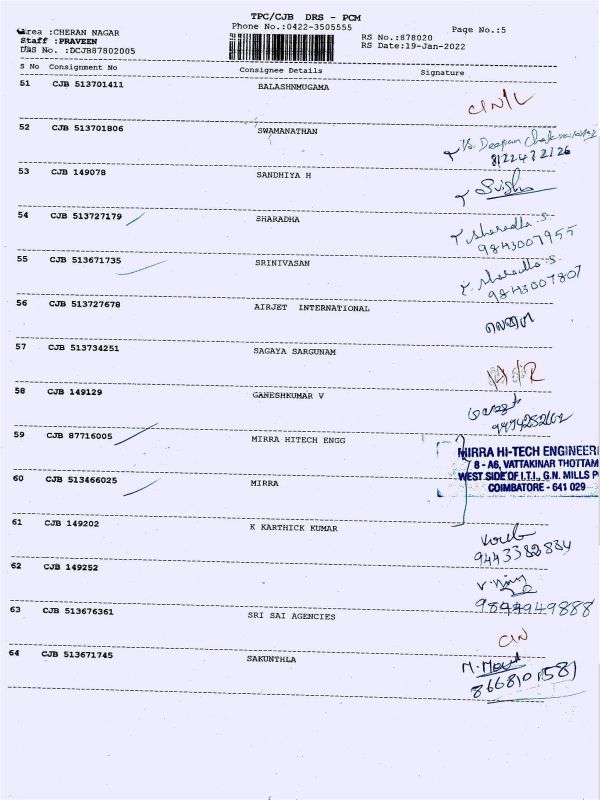 TPC/CJB DRS - PCM
Area :CHERAN NAGAR
Phone No.:0422-3505555
Page No.:5
Staff :PRAVEEN
RS No.:878020
DRS No. :DCJB87802005
RS Date:19-Jan-2022
S No Consignment No Consignee Details Signature
51 CJB 513701411 BALASHNMUGAMA
52 CJB 513701806 SWAMANATHAN
V.S. Deepan
8122472726
53 CJB 149078 SANDHIYA H
54 CJB 513727179 SHARADHA
Sharadha S.
9843007955
55 CJB 513671735 SRINIVASAN
Sharadha S.
9843007807
56 CJB 513727678 AIRJET INTERNATIONAL
57 CJB 513734251 SAGAYA SARGUNAM
58 CJB 149129 GANESHKUMAR V
59 CJB 87716005 MIRRA HITECH ENGG
MIRRA HI-TECH ENGINEERI
8 - A6, VATTAKINAR THOTTAM
60 CJB 513466025 MIRRA
WEST SIDE OF I.T.I., G.N. MILLS P
COIMBATORE - 641 029
61 CJB 149202 K KARTHICK KUMAR
9443382834
62 CJB 149252
9894949888
63 CJB 513676361 SRI SAI AGENCIES
64 CJB 513671745 SAKUNTHLA
8668101581